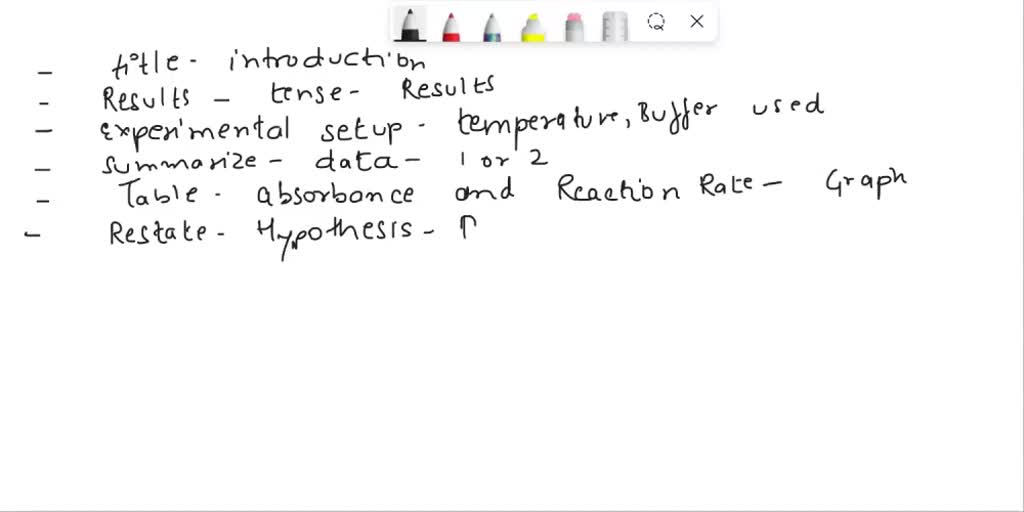 - title - introduction
- Results - tense - Results
- experimental setup - temperature, Buffer used
- summarize - data - 1 or 2
- Table - absorbance and Reaction Rate - Graph
- Restate - Hypothesis -